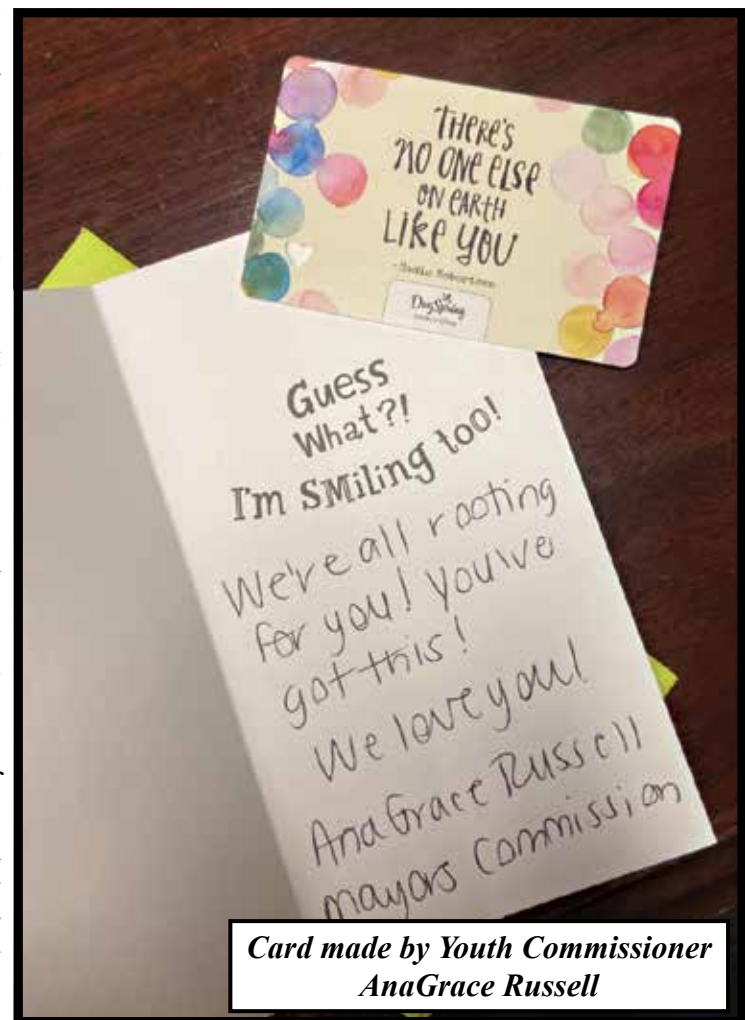 THERE'S
NO ONE ELSE
ON EARTH
LIKE YOU
- Sadie Robertson
DaySpring
Guess
What?!
I'm SMiling too!
We're all rooting
for you! you've
got this!
We love you!
AnaGrace Russell
mayors Commission
Card made by Youth Commissioner
AnaGrace Russell